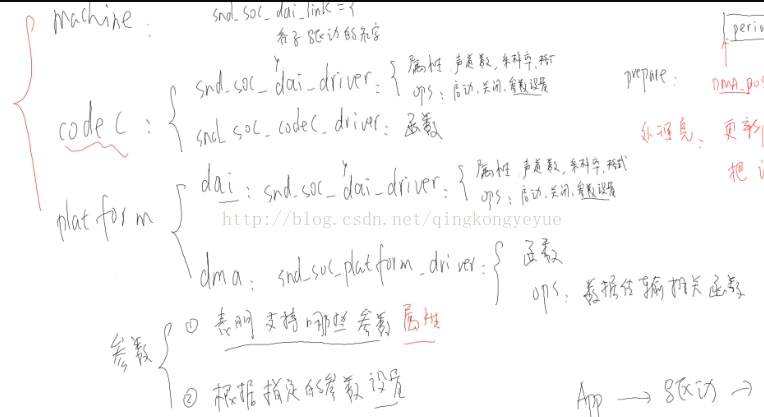 machine: snd_soc_dai_link = {
各子驱动的名字
codec: { snd_soc_dai_driver: { 属性 声道数, 采样率, 格式
ops: 启动、关闭、参数设置
snd_soc_codec_driver: 函数
platform { dai: snd_soc_dai_driver: { 属性 声道数, 采样率, 格式
ops: 启动、关闭、参数设置
http://blog.csdn.net/qingkongyeyue
dma: snd_soc_platform_driver: { 函数
ops: 数据传输相关函数
参数 { ① 表明支持哪些参数 属性
② 根据指定的参数设置
perio
prepare: DMA_pos
处理完、更新
把
App → 驱动 →